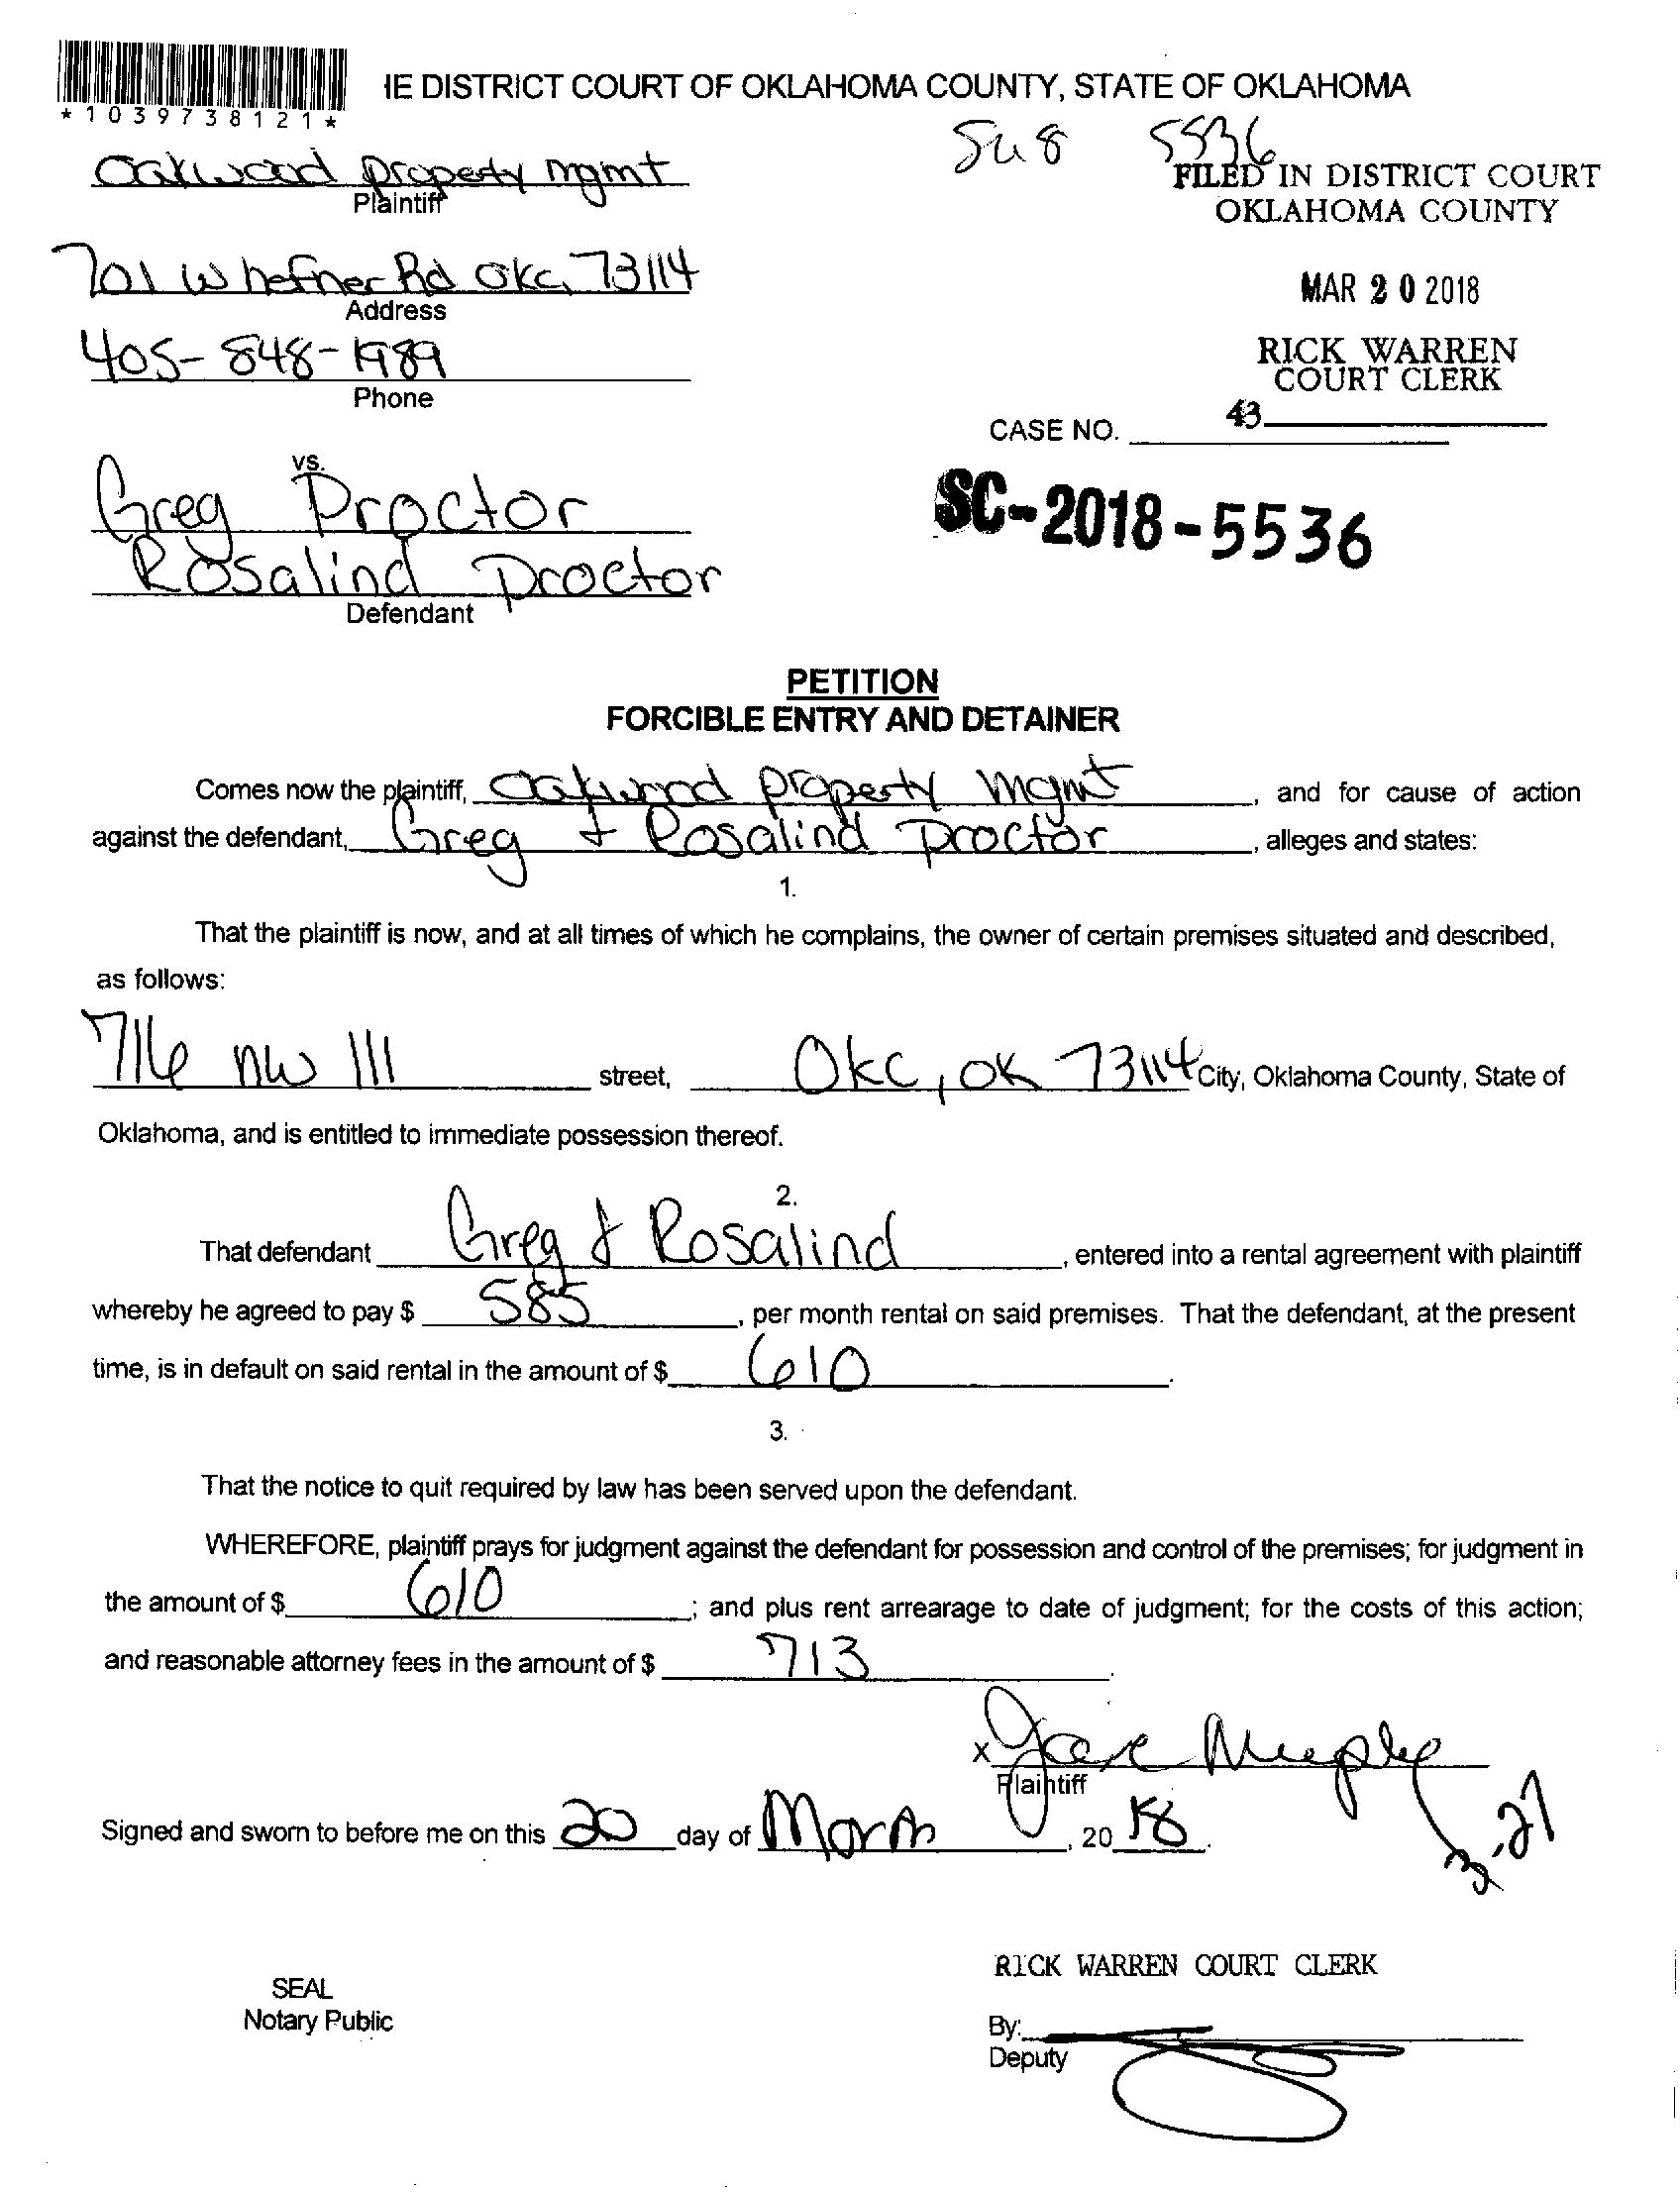 *1039738121*
IE DISTRICT COURT OF OKLAHOMA COUNTY, STATE OF OKLAHOMA
5536
Oakwood property mgmt
Plaintiff
FILED IN DISTRICT COURT
OKLAHOMA COUNTY
701 W hefner Rd okc, 73114
Address
MAR 20 2018
405-848-1989
Phone
RICK WARREN
COURT CLERK
43
CASE NO.
vs.
Greg Proctor
Rosalind Proctor
Defendant
SC-2018-5536
PETITION
FORCIBLE ENTRY AND DETAINER
Comes now the plaintiff, Oakwood property mgmt, and for cause of action
against the defendant, Greg & Rosalind Proctor, alleges and states:
1.
That the plaintiff is now, and at all times of which he complains, the owner of certain premises situated and described,
as follows:
716 NW 111 street, Okc, OK 73114 City, Oklahoma County, State of
Oklahoma, and is entitled to immediate possession thereof.
2.
That defendant Greg & Rosalind, entered into a rental agreement with plaintiff
whereby he agreed to pay $ 585, per month rental on said premises. That the defendant, at the present
time, is in default on said rental in the amount of $ 610.
3.
That the notice to quit required by law has been served upon the defendant.
WHEREFORE, plaintiff prays for judgment against the defendant for possession and control of the premises; for judgment in
the amount of $ 610; and plus rent arrearage to date of judgment; for the costs of this action;
and reasonable attorney fees in the amount of $ 713.
x
Plaintiff
Signed and sworn to before me on this 20 day of March, 20 18.
3-27
RICK WARREN COURT CLERK
SEAL
Notary Public
By:
Deputy